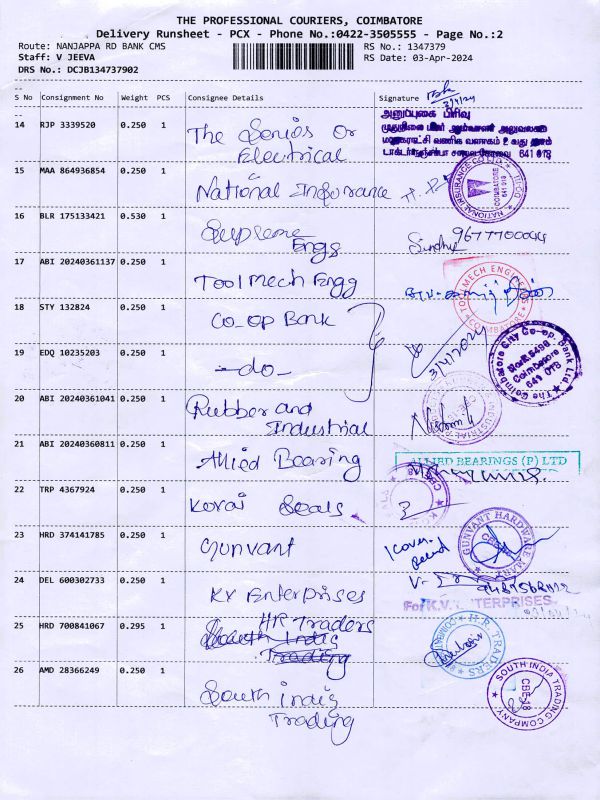 THE PROFESSIONAL COURIERS, COIMBATORE
Delivery Runsheet - PCX - Phone No.:0422-3505555 - Page No.:2
Route: NANJAPPA RD BANK CMS RS No.: 1347379
Staff: V JEEVA RS Date: 03-Apr-2024
DRS No.: DCJB134737902
S No Consignment No Weight PCS Consignee Details Signature
3/4/24
14 RJP 3339520 0.250 1 The Senior Or
Electrical
அனுப்புகை பிரிவு
641 018
15 MAA 864936854 0.250 1 National Insurance
NATIONAL INSURANCE CO LTD
COIMBATORE
641 018
16 BLR 175133421 0.530 1 Supreme
Engs
Sindhu 9677700044
17 ABI 20240361137 0.250 1 Toolmech Engg
TOOLMECH ENGINEERS
COIMBATORE
18 STY 132824 0.250 1 Co-op Bank
3/4/2024
19 EDQ 10235203 0.250 1 -do-
The Coimbatore City Co-op. Bank Ltd.
Coimbatore
641 018
20 ABI 20240361041 0.250 1 Rubber and
Industrial
21 ABI 20240360811 0.250 1 Allied Bearing
ALLIED BEARINGS (P) LTD
22 TRP 4367924 0.250 1 Kovai Seals
23 HRD 374141785 0.250 1 Gunvant
1 Cover
Recvd
GUNVANT HARDWARE MART
24 DEL 600302733 0.250 1 KV Enterprises
For K.V. ENTERPRISES
25 HRD 700841067 0.295 1 HR Traders
South Indis
Trading
H.R. TRADERS
26 AMD 28366249 0.250 1 South indis
Trading
SOUTH INDIA TRADING COMPANY
CBE-18